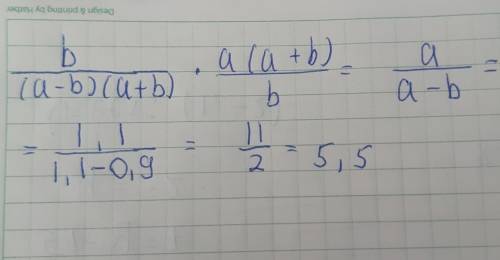 Design & printing by Hatber
b/((a-b)(a+b)) · a(a+b)/b = a/(a-b) =
= 1,1/(1,1-0,9) = 11/2 = 5,5